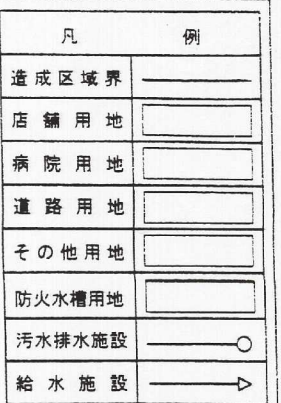 凡例
造成区域界
店舗用地
病院用地
道路用地
その他用地
防火水槽用地
汚水排水施設
給水施設